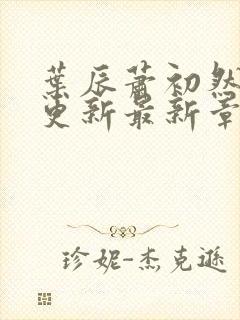 葉辰蕭初然
更新最新章
珍妮-杰克遜